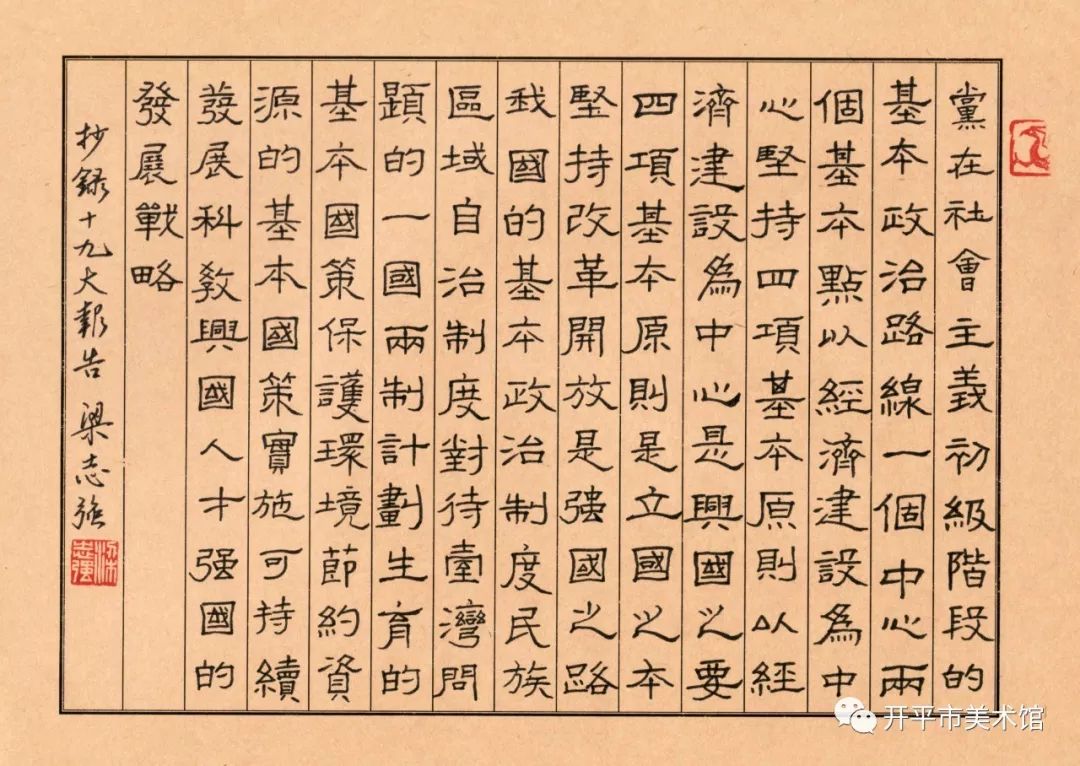 黨在社會主義初級階段的
基本政治路線一個中心兩
個基本點以經濟建設為中
心堅持四項基本原則以經
濟建設為中心是興國之要
四項基本原則是立國之本
堅持改革開放是强國之路
我國的基本政治制度民族
區域自治制度對待臺灣問
題的一國兩制計劃生育的
基本國策保護環境節約資
源的基本國策實施可持續
發展科教興國人才强國的
發展戰略
抄録十九大報告 梁志強
开平市美术馆